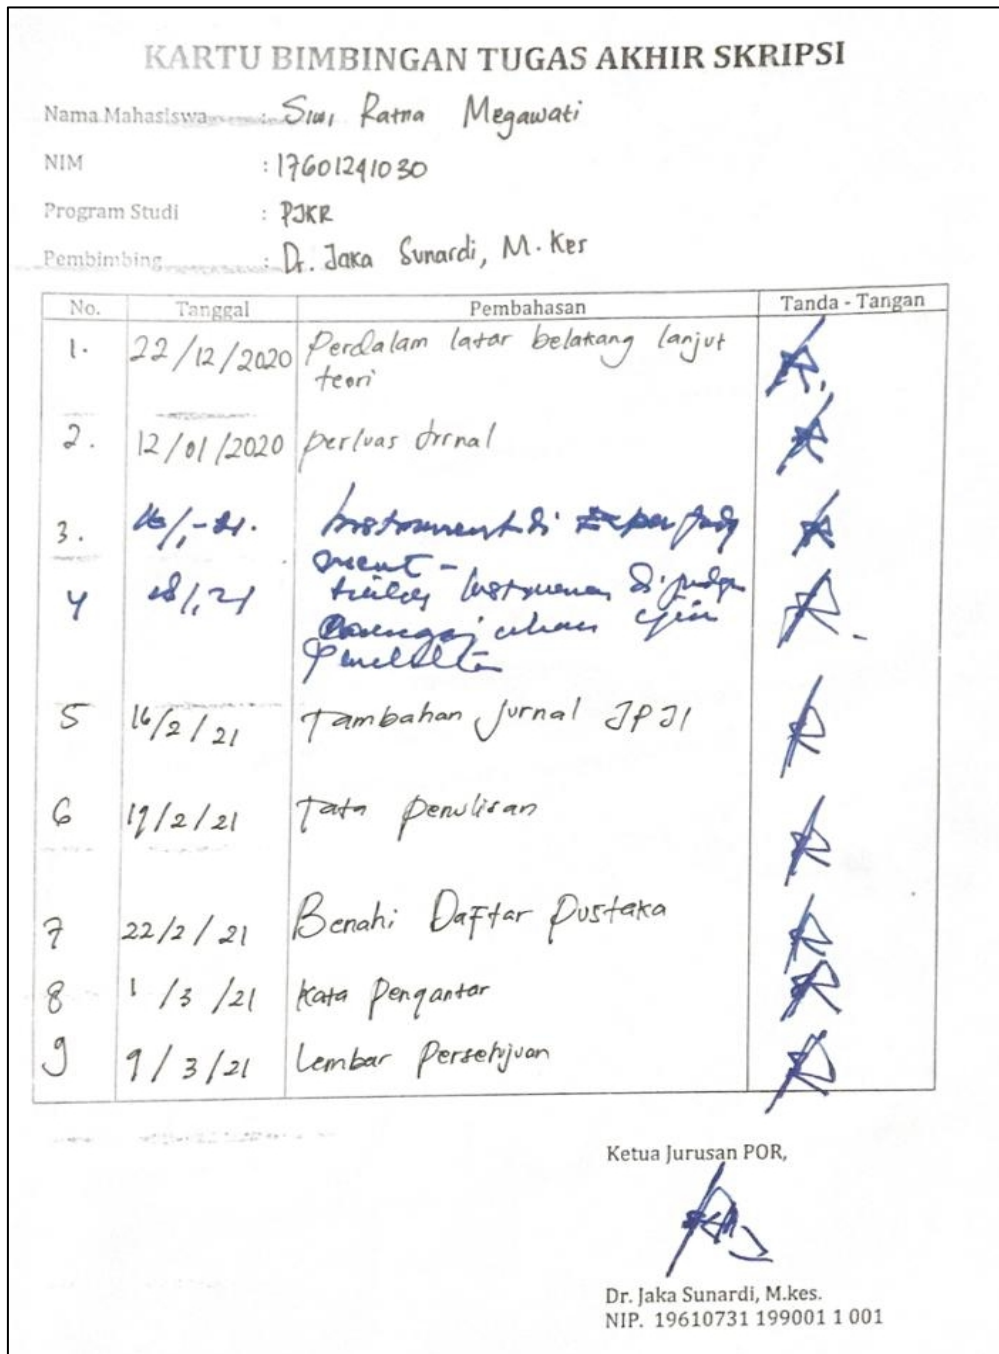 KARTU BIMBINGAN TUGAS AKHIR SKRIPSI
Nama Mahasiswa : Siwi Ratna Megawati
NIM : 17601241030
Program Studi : PJKR
Pembimbing : Dr. Jaka Sunardi, M.Kes
No. Tanggal Pembahasan Tanda - Tangan
1. 22/12/2020 Perdalam latar belakang lanjut
teori
2. 12/01/2020 perluas
3. Instrument di
ment -
4 Instrumen di
penelitian
5 16/2/21 Tambahan Jurnal JPJI
6 19/2/21 Tata penulisan
7 22/2/21 Benahi Daftar Pustaka
8 1/3/21 Kata Pengantar
9 9/3/21 Lembar Persetujuan
Ketua Jurusan POR,
Dr. Jaka Sunardi, M.kes.
NIP. 19610731 199001 1 001